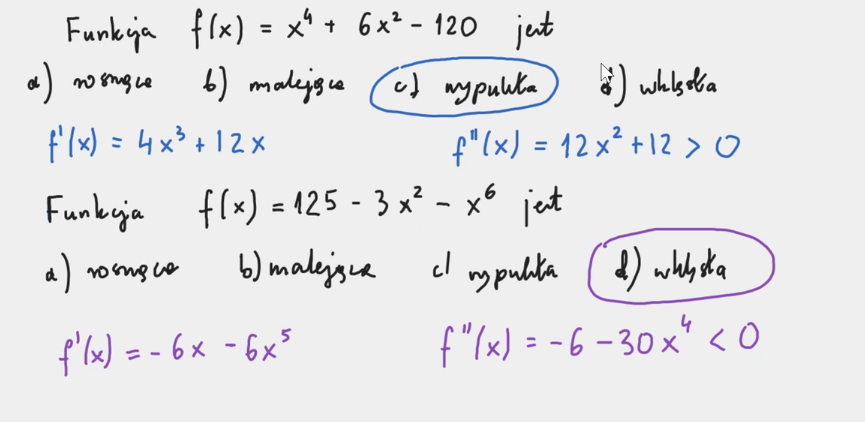 Funkcja f(x) = x⁴ + 6x² - 120 jest
a) rosnąca b) malejąca c) wypukła d) wklęsła
f'(x) = 4x³ + 12x f''(x) = 12x² + 12 > 0
Funkcja f(x) = 125 - 3x² - x⁶ jest
a) rosnąca b) malejąca c) wypukła d) wklęsła
f'(x) = - 6x - 6x⁵ f''(x) = - 6 - 30x⁴ < 0